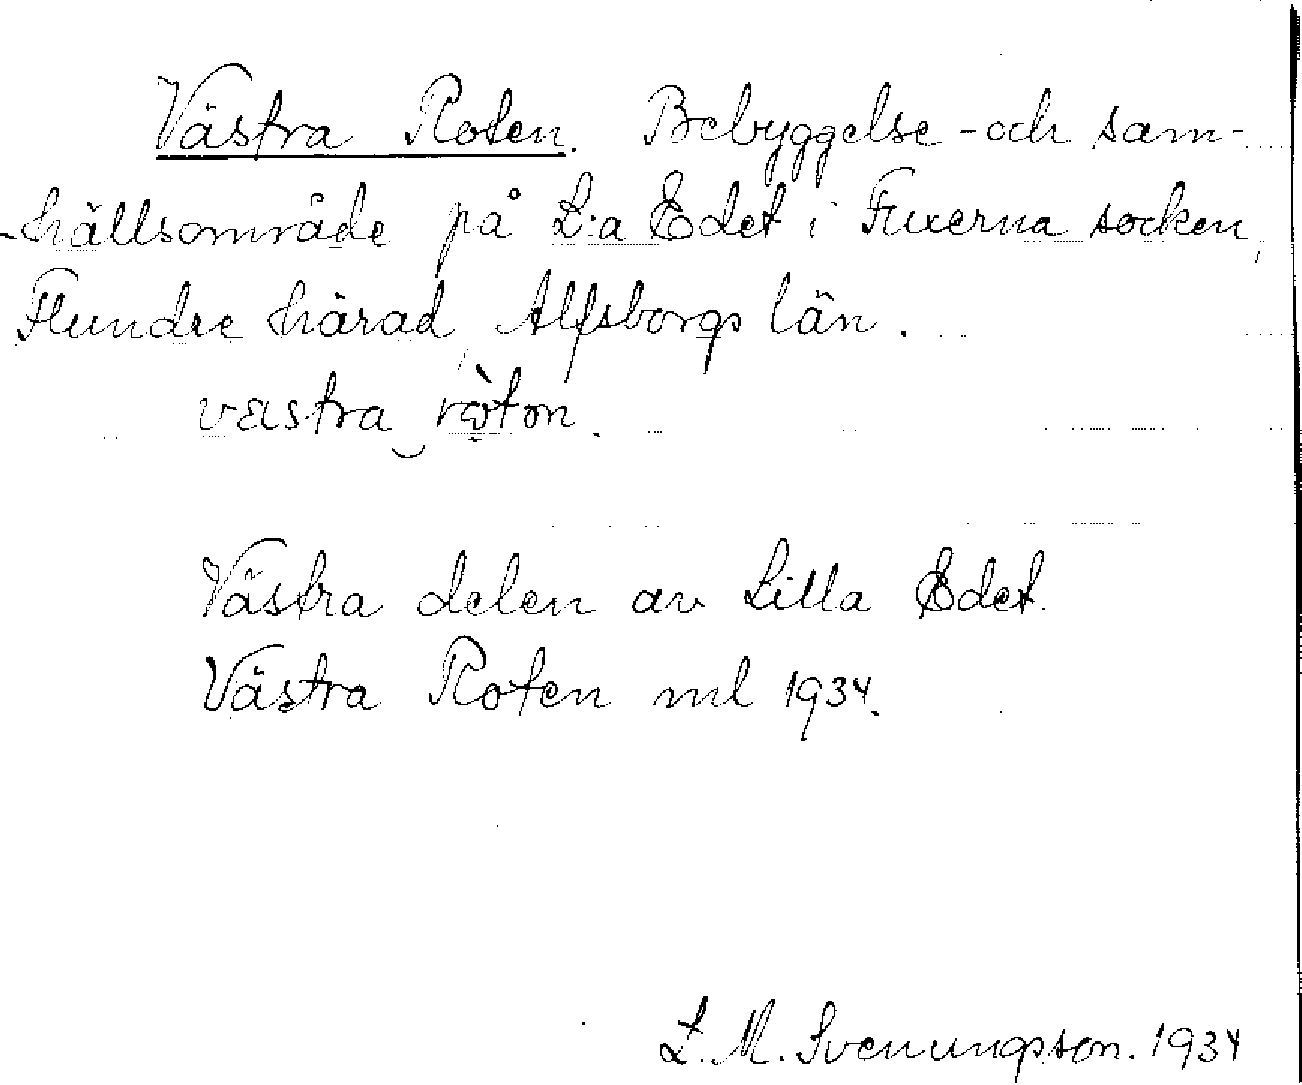 Västra Roten. Bebyggelse- och sam-
-hällsområde på L:a Edet i Fuxerna socken,
Flundre härad, Älfsborgs län.
västra rò̤ton.
Västra delen av Lilla Edet.
Västra Roten ml 1934.
L. M. Svenungsson. 1934